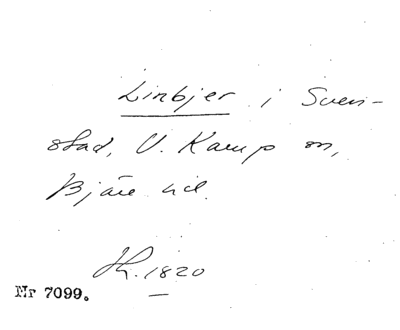 Linbjer i Sven-
stad, V. Karup sn,
Bjäre hd.
Sk. 1820
Nr 7099.